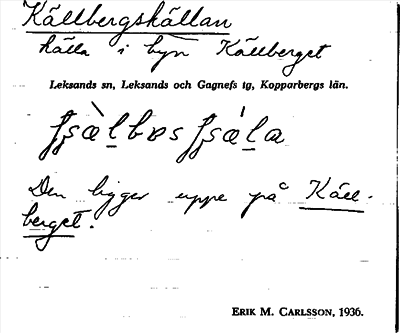 Källbergskällan
källa i byn Källberget
Leksands sn, Leksands och Gagnefs tg, Kopparbergs län.
Den ligger uppe på Käll-
berget.
ERIK M. CARLSSON, 1936.